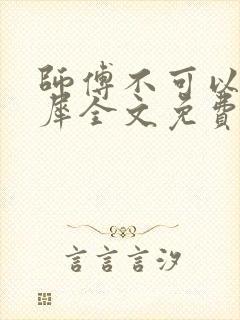 師傅不可以
犀全文免費
言言言汐